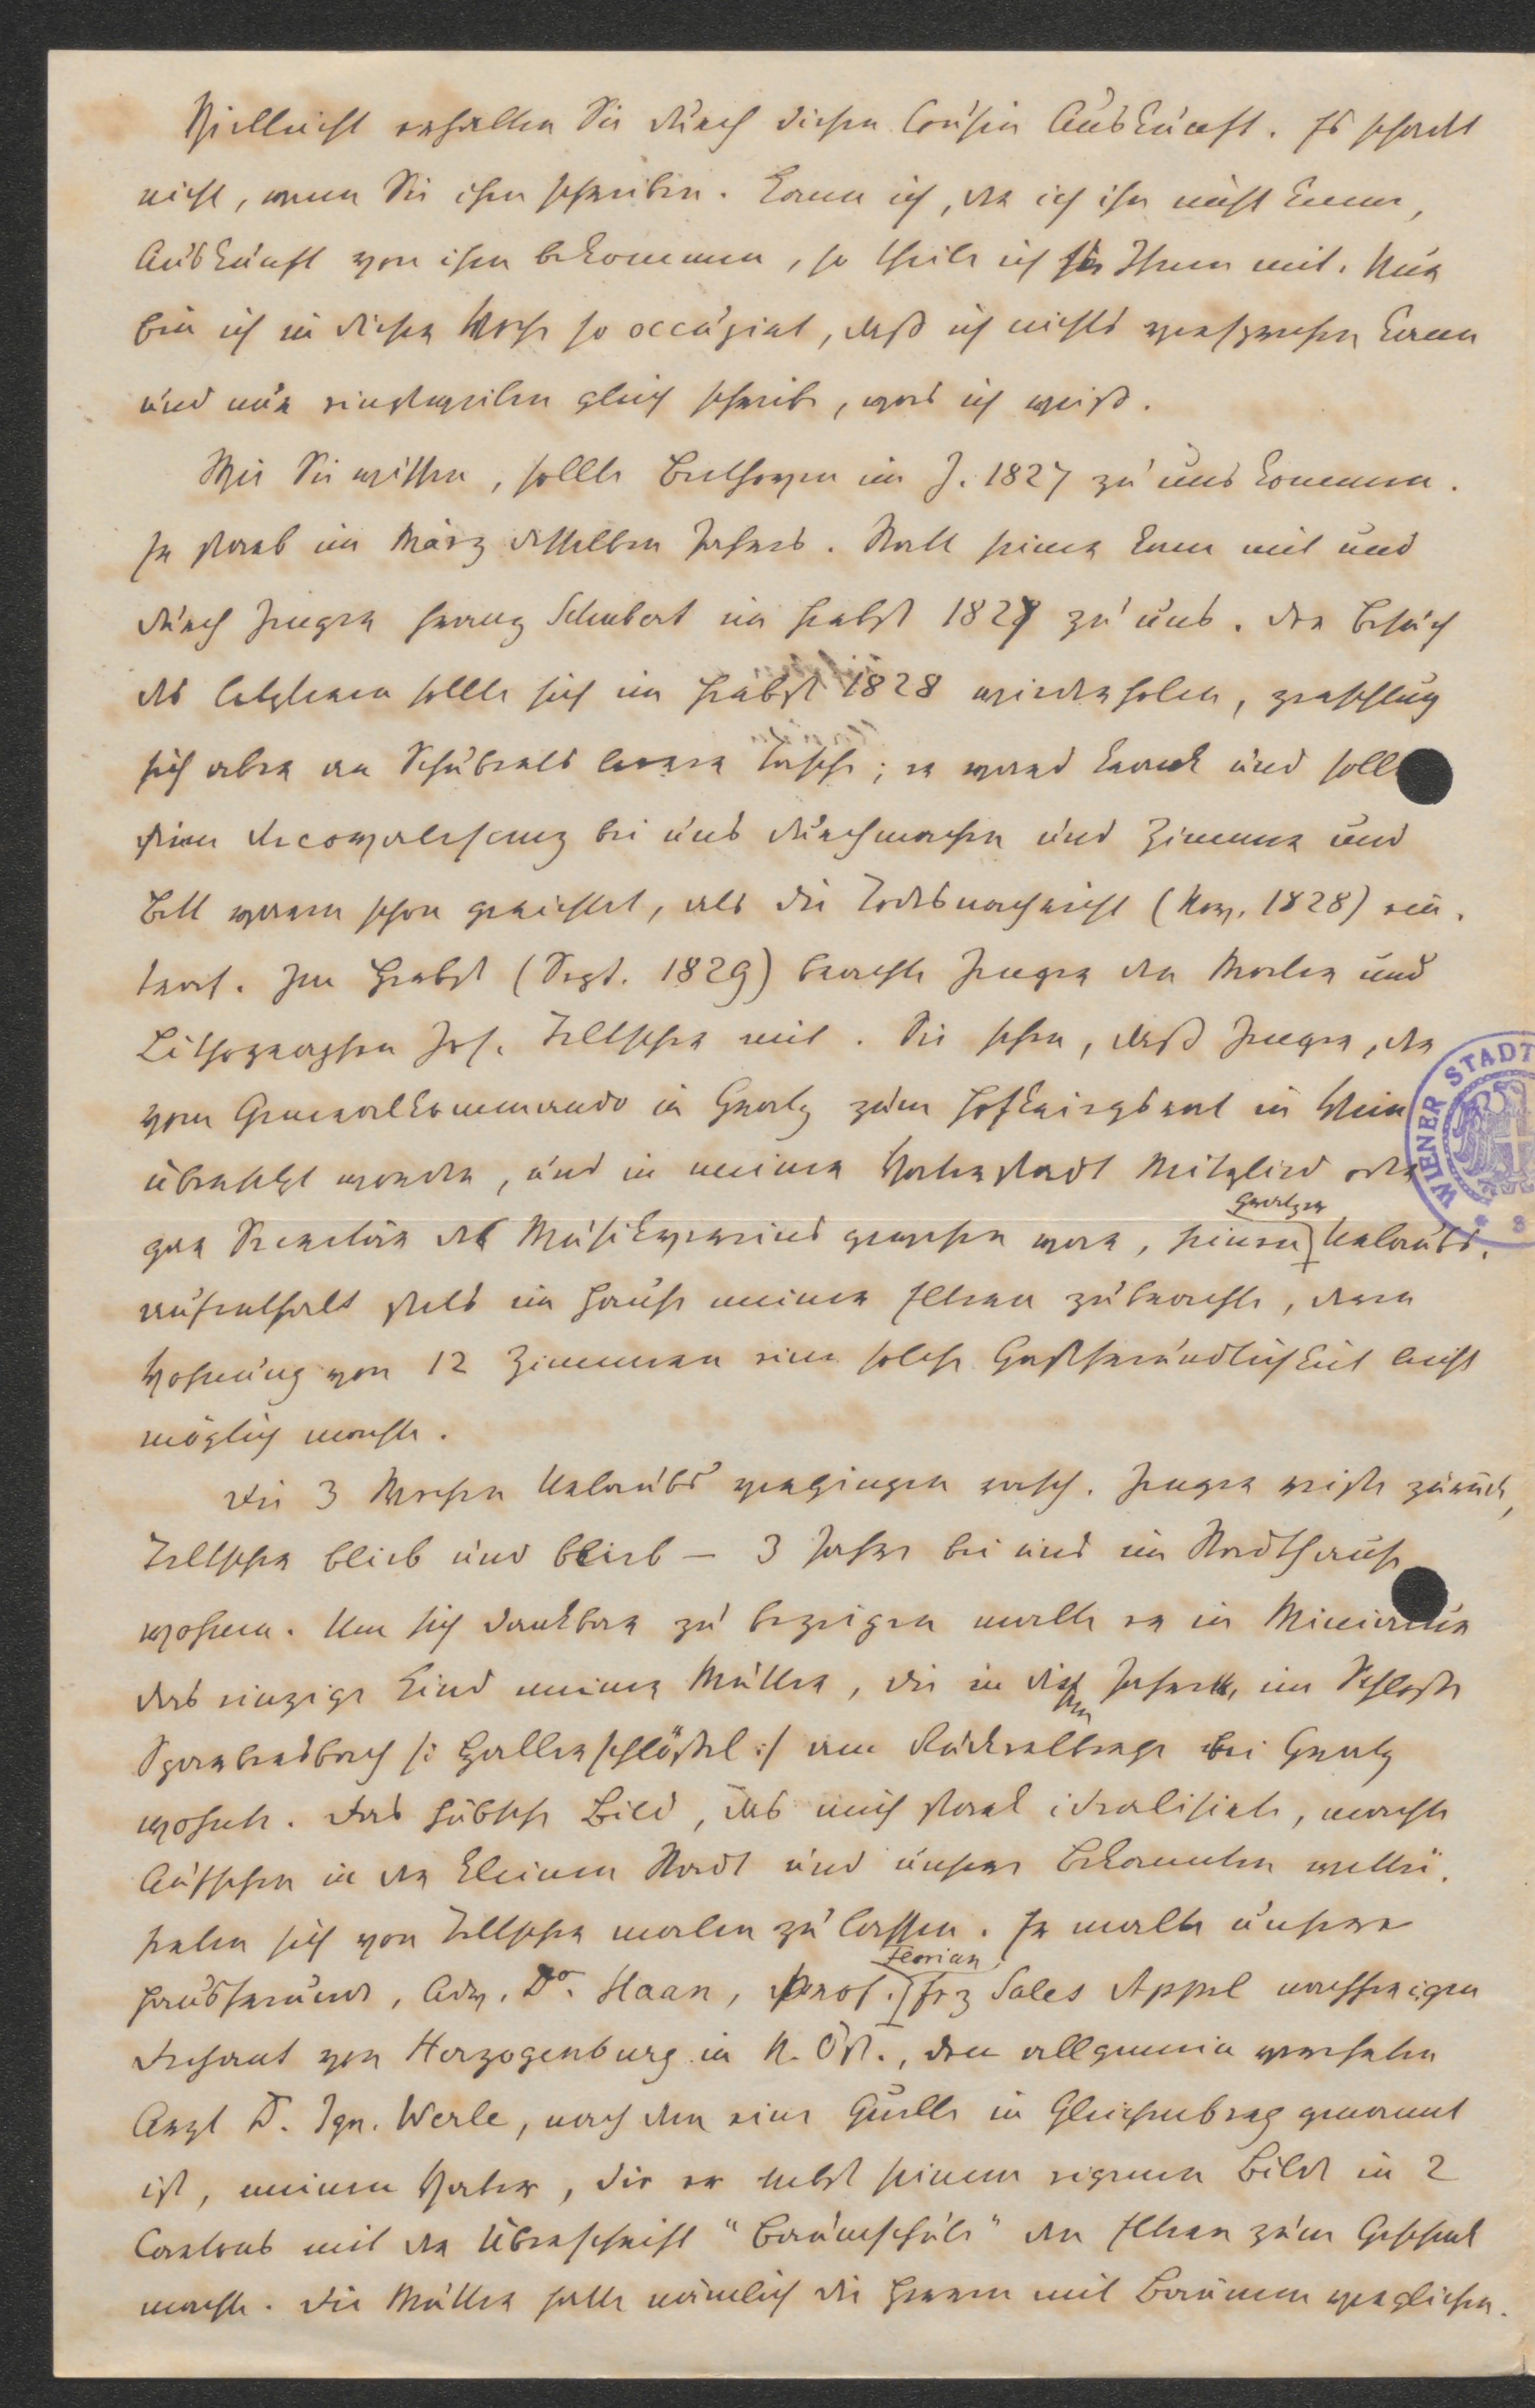 Vielleicht erhalten Sie durch diesen Cousin Auskunft. Es schadet
nicht, wenn Sie ihm schreiben. Kann ich, da ich ihn nicht kenne,
Auskunft von ihm bekommen, so theile ich sie Ihnen mit. Nur
bin ich in dieser Woche so occupirt, daß ich nichts versprechen kann
und nur einstweilen gleich schreibe, was ich weiß.
Wie Sie wissen, sollte Beethoven im J. 1827 zu uns kommen.
Er starb im März desselben Jahres. Statt seiner kam mit und
durch Jenger Franz Schubert im Herbst 1827 zu uns. Der Besuch
des letzteren sollte sich im Herbst 1828 wiederholen, zerschlug
sich aber an Schuberts leerer Tasche; er ward krank und sollte
seine Reconvalescenz bei uns durchmachen und Zimmer und
Bett waren schon gerichtet, als die Todesnachricht (Nov. 1828) ein-
traf. Im Herbst (Sept. 1829) brachte Jenger den Maler und
Lithographen Jos. Teltscher mit. Sie sehen, daß Jenger, der
vom Generalkommando in Gratz zum Hofkriegsrat in Wien
übersetzt worden, und in meiner Vaterstadt Mitglied oder
gar Secretär des Musikvereins gewesen war, seinen Gratzer Urlaubs-
aufenthalt stets im Hause meiner Eltern zubrachte, deren
Wohnung von 12 Zimmern eine solche Gastfreundlichkeit leicht
möglich machte.
Die 3 Wochen Urlaubs vergingen rasch. Jenger reiste zurück,
Teltscher blieb und blieb — 3 Jahre bei uns im Stadthause
wohnen. Um sich dankbar zu bezeigen malte er in Miniatur
das einzige Kind meiner Mutter, die in diesen Jahren im Schlosse
Sparbersbach /: Hallerschlössel :/ am Ruckerlberge bei Gratz
wohnte. Das hübsche Bild, das mich stark idealisirte, machte
Aufsehen in der kleinen Stadt und unsere Bekannten wettei-
ferten sich von Teltscher malen zu lassen. Er malte unsere
Hausfreunde, Adv. Dr. Haan, Prof. Florian Frz Sales Appel nachherigen
Dechant von Herzogenburg in N. Öst., den allgemein verehrten
Arzt Dr. Ign. Werle, nach dem eine Quelle in Gleichenberg genannt
ist, meinen Vater, die er nebst seinem eigenen Bilde in 2
Cartons mit der Überschrift "Baumschule" den Eltern zum Geschenk
machte. Die Mutter hatte nämlich die Herren mit Bäumen verglichen.
WIENER STADT